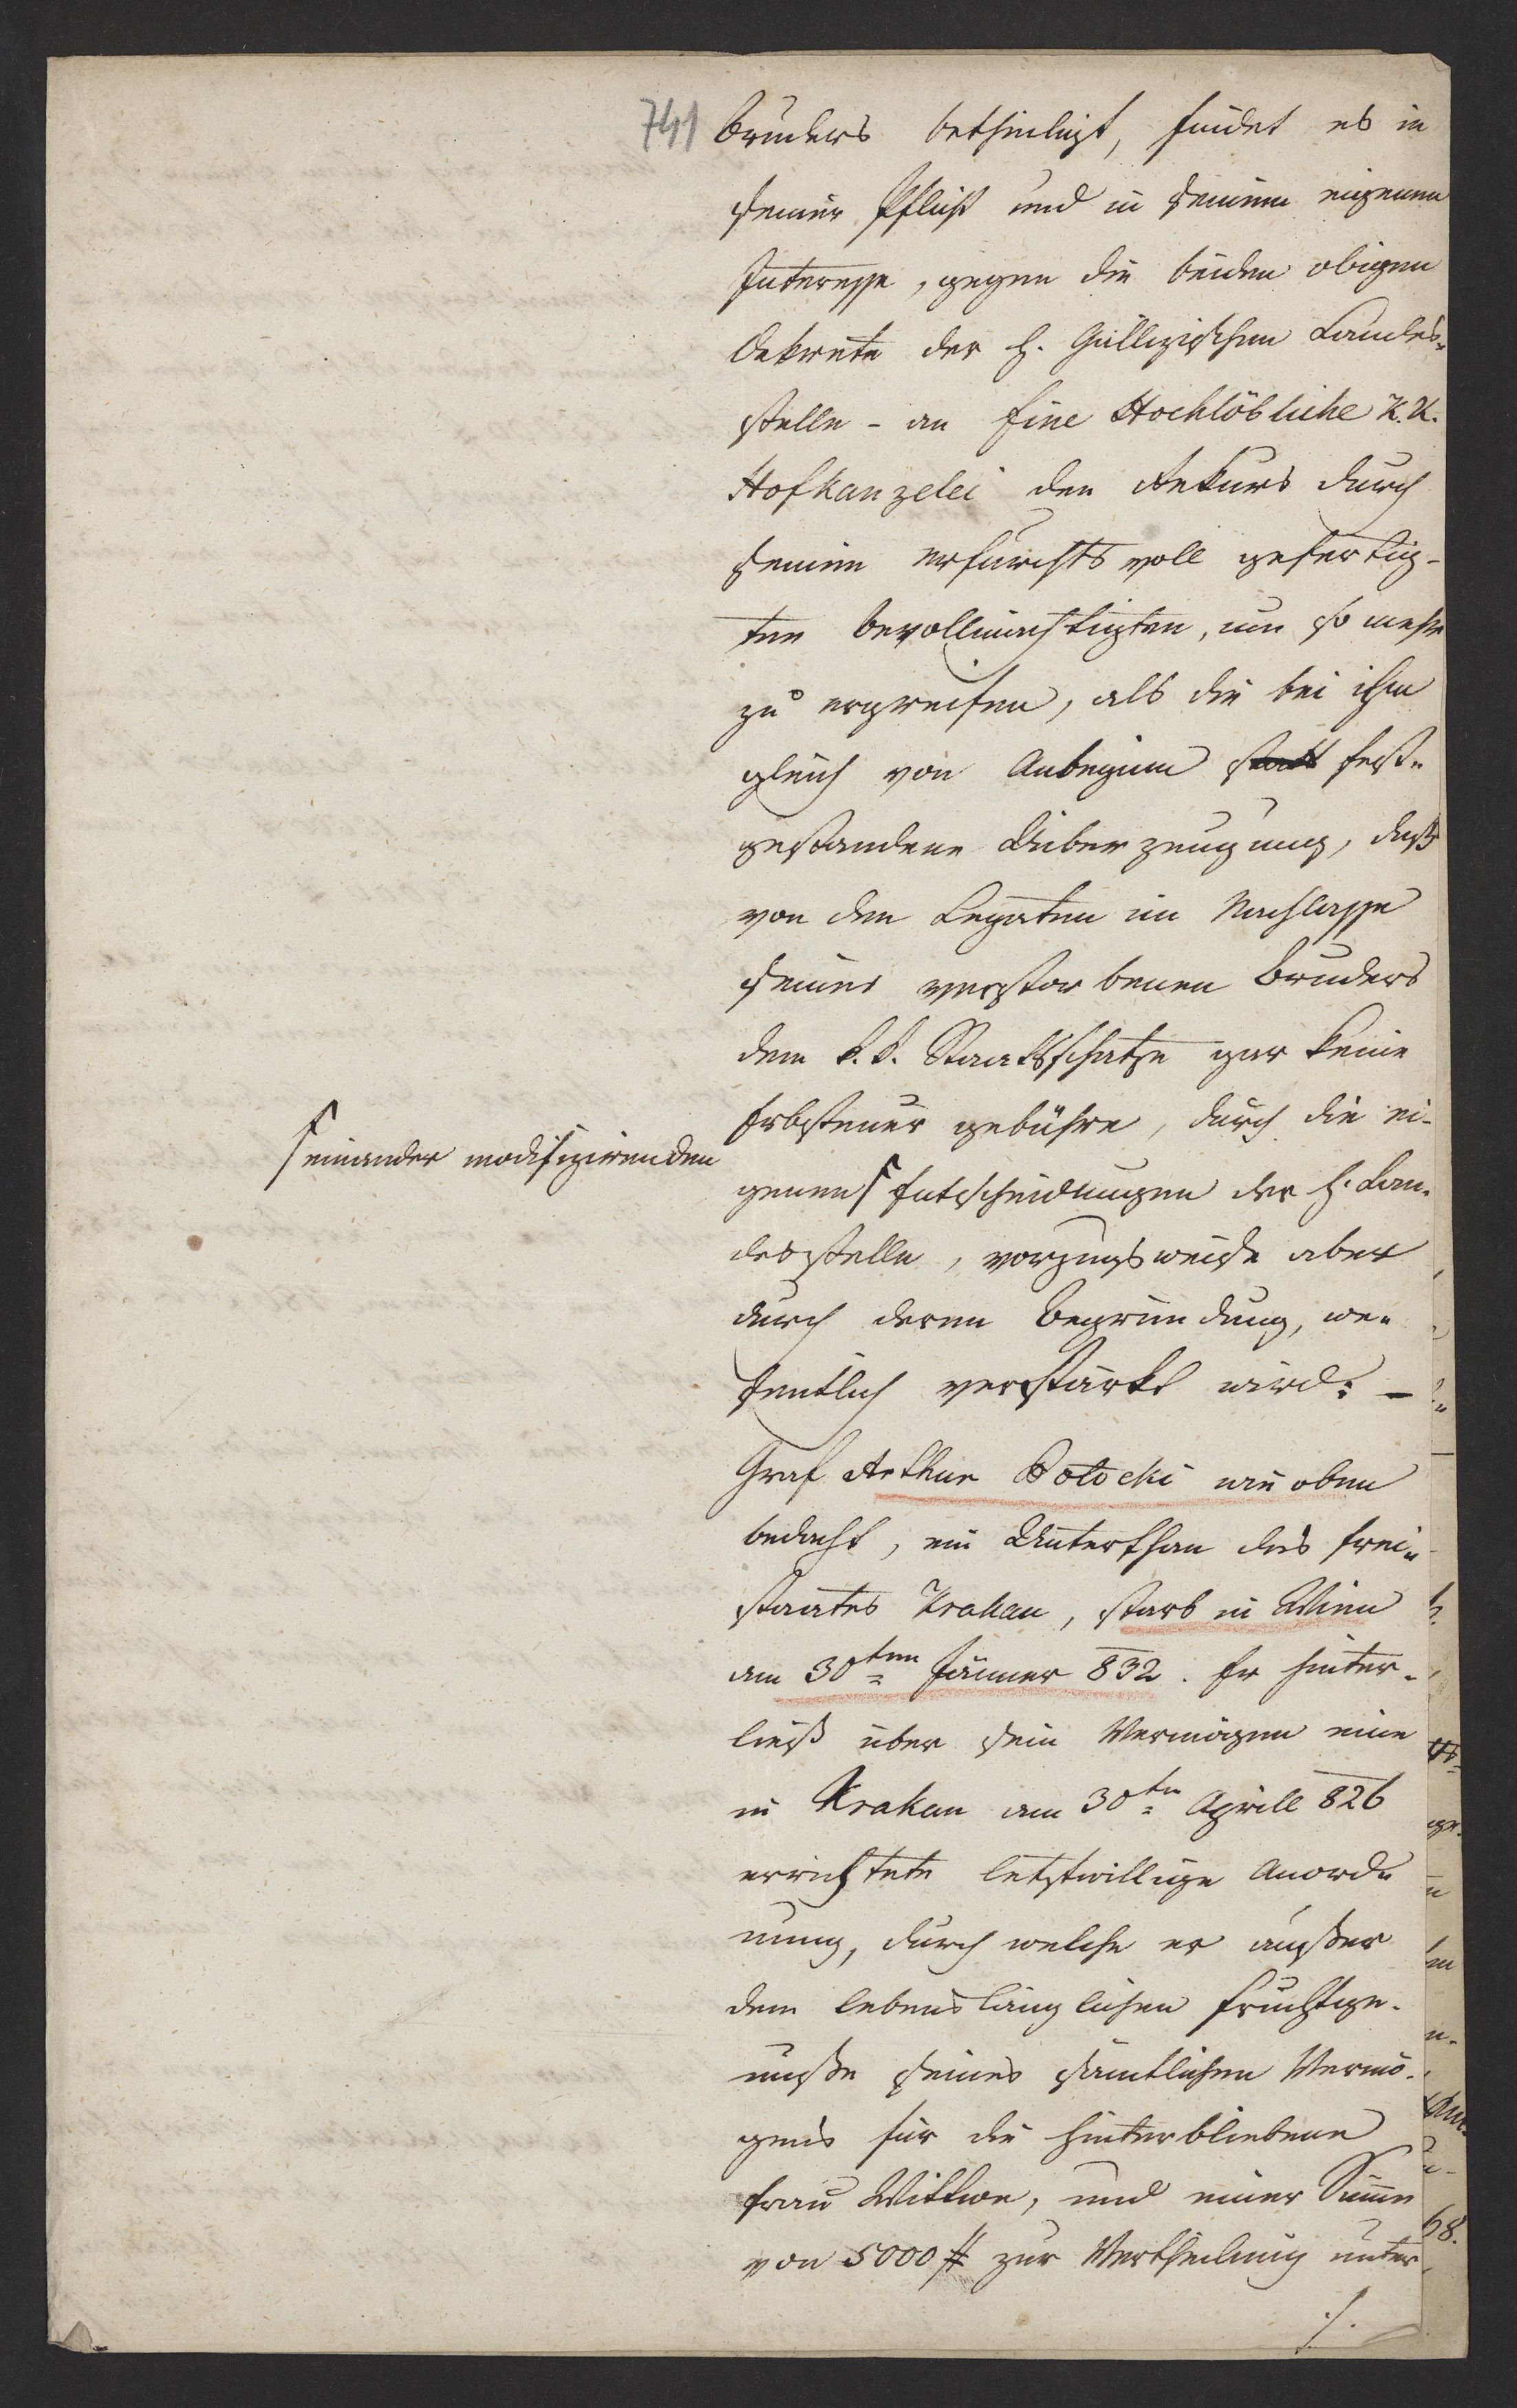 741
Bruders betheiligt, findet es in
seiner Pflicht und in seinem eigenen
Interesse, gegen die beiden obigen
Dekrete der h. Gallizischen Landes-
stelle - an Eine Hochlöbliche K.K.
Hofkanzelei den Rekurs durch
seinen erfurchtsvoll gefertig-
ten Bevollmächtigten, um so mehr
zu ergreifen, als die bei ihm
gleich von Anbeginn statt fest-
gestandene Uiberzeugung, daß
von den Legaten im Nachlasse
seines verstorbenen Bruders
dem k.k. Staatsschatze gar keine
Erbsteuer gebühre, durch die ei-
einander modifizirenden
genen Entscheidungen der h. Lan-
desstelle, vorzugsweise aber
durch deren Begründung, we-
sentlich verstärkt wird: -
Graf Arthur Potocki wie oben
bedacht, ein Unterthan des Frei-
staates Krakau, starb in Wien
am 30ten Jänner 832. Er hinter-
ließ über sein Vermögen eine
in Krakau am 30te Aprill 826
errichtete letztwillige Anord-
nung, durch welche er außer
dem lebenslänglichen Fruchtge-
nuße seines sämtlichen Vermö-
gens für die hinterbliebene
Frau Wittwe, und einer Summe
von 5000 # zur Vertheilung unter
./.
68.